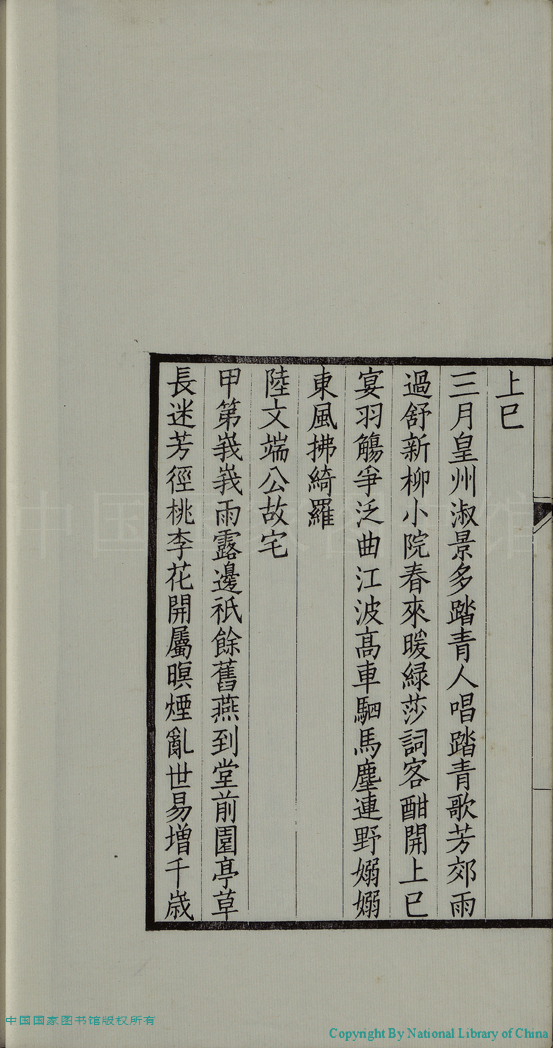 上巳
三月皇州淑景多踏青人唱踏青歌芳郊雨
過舒新柳小院春來暖緑莎詞客酣開上巳
宴羽觴爭泛曲江波高車駟馬塵連野嫋嫋
東風拂綺羅
陸文端公故宅
甲第峩峩雨露邊祇餘舊燕到堂前園亭草
長迷芳徑桃李花開屬暝煙亂世易增千歳
中国国家图书馆
中国国家图书馆版权所有
Copyright By National Library of China